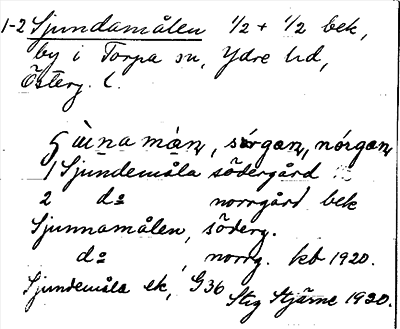 1-2 Sjundamålen 1/2 + 1/2 bek,
by i Torpa sn, Ydre hd,
Österg. l.
ʃùnamàn, sórgan, nórgan
1 Sjundemåla södergård
2 dº norrgård bek
Sjunnamålen, söderg.
dº, norrg. kb 1920.
Sjundemåla ek, G36
Stig Stjärne 1920.